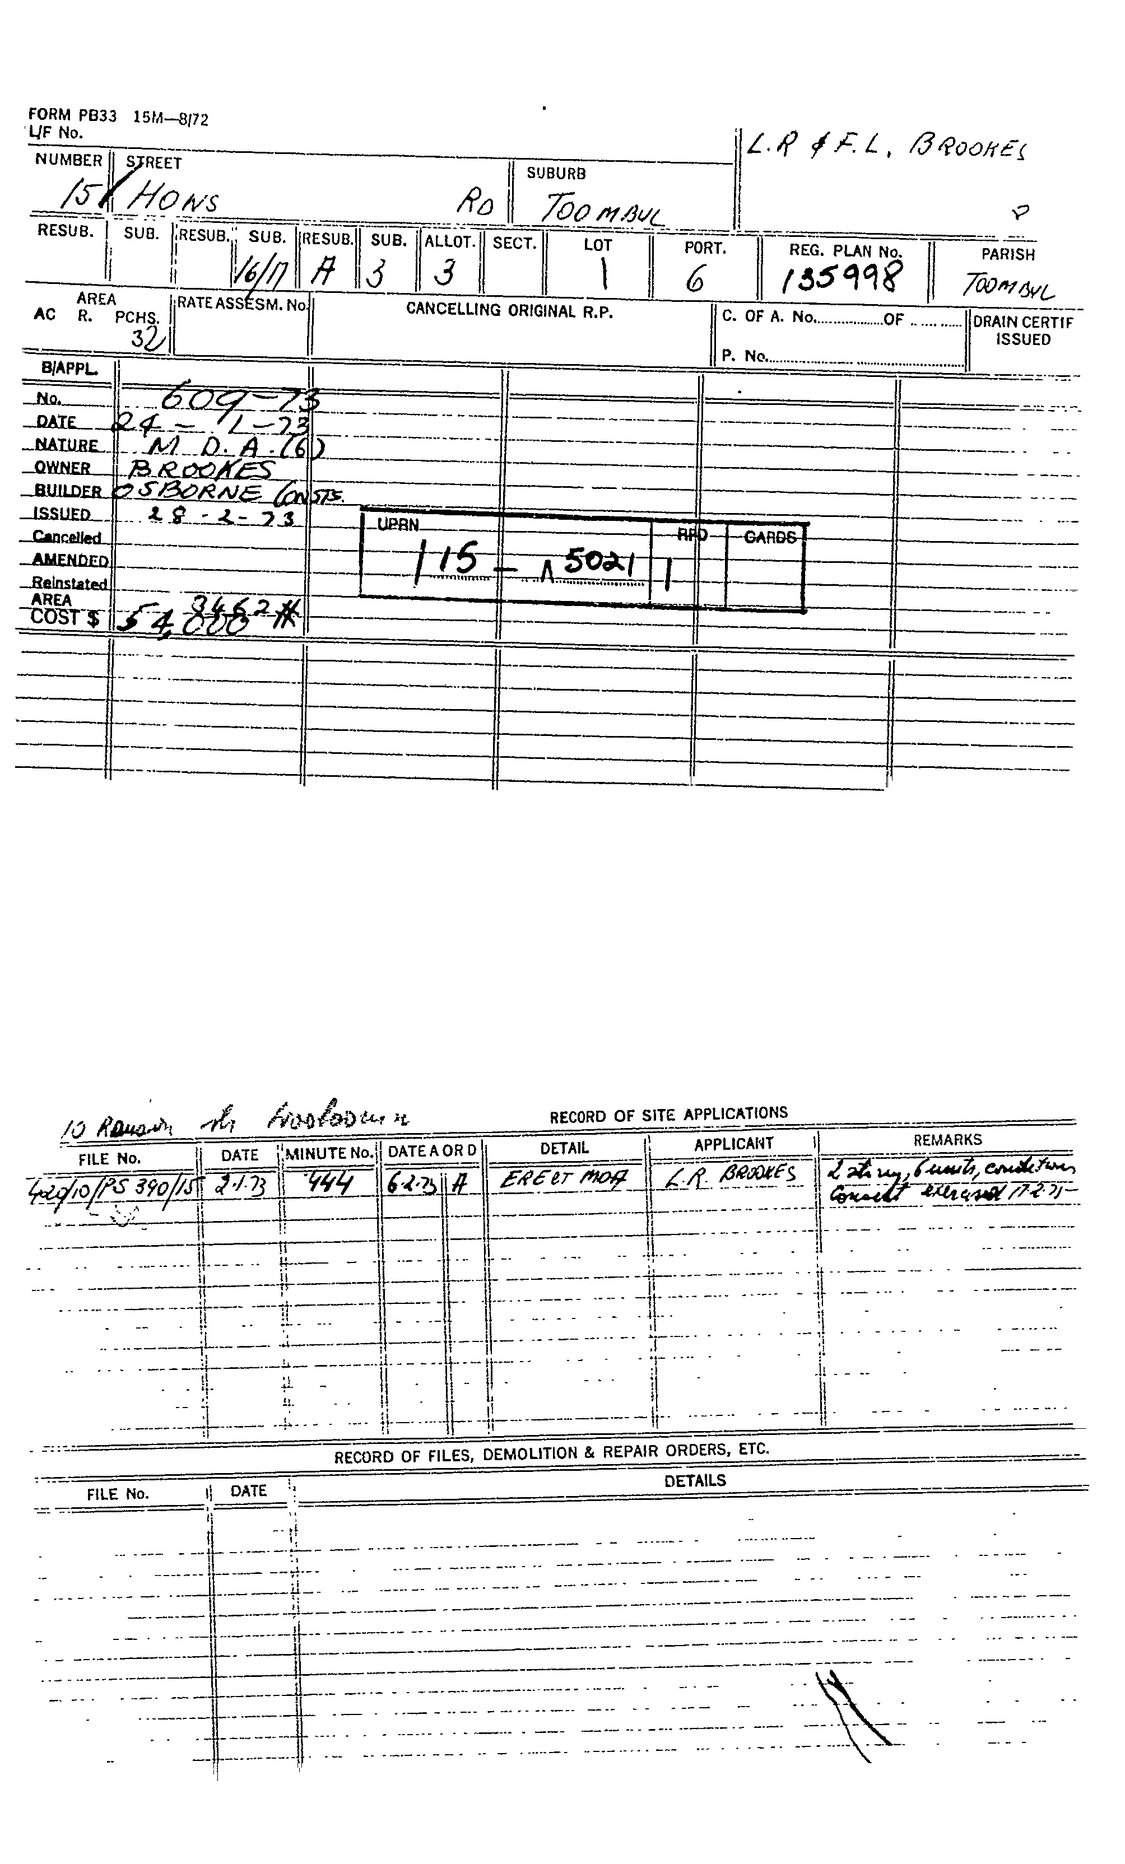 FORM PB33 15M—8/72
L/F No.
L.R & F.L. BROOKES
NUMBER STREET SUBURB
15 HONS RD TOOMBUL
RESUB. SUB. RESUB. SUB. RESUB. SUB. ALLOT. SECT. LOT PORT. REG. PLAN No. PARISH
16/17 A 3 3 1 6 135998 TOOMBUL
AREA RATE ASSESM. No. CANCELLING ORIGINAL R.P. C. OF A. No. OF DRAIN CERTIF
AC R. PCHS. ISSUED
32 P. No.
B/APPL.
No. 609-73
DATE 24-1-73
NATURE M D.A.(6)
OWNER BROOKES
BUILDER OSBORNE CONSTS.
ISSUED 28-2-73
UPRN RPD CARDS
Cancelled
115 - 5021 1
AMENDED
Reinstated
AREA 3462
COST $ 54,000
10 RECORD OF SITE APPLICATIONS
FILE No. DATE MINUTE No. DATE A OR D DETAIL APPLICANT REMARKS
420/10/PS 390/15 2.1.73 444 6.2.73 A ERECT MDA L.R. BROOKES 2 storey, 6 units, conditions
Consent exercised 17-2-75
RECORD OF FILES, DEMOLITION & REPAIR ORDERS, ETC.
FILE No. DATE DETAILS